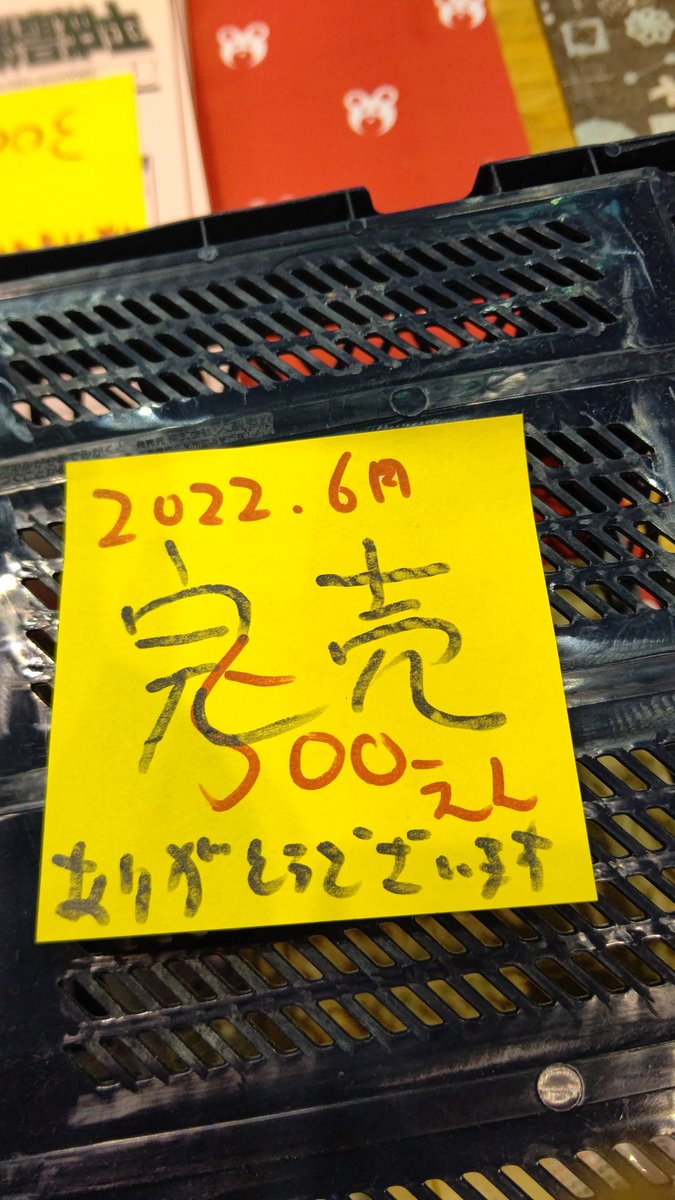 300
2022.6月
完売
500-
ありがとうございます